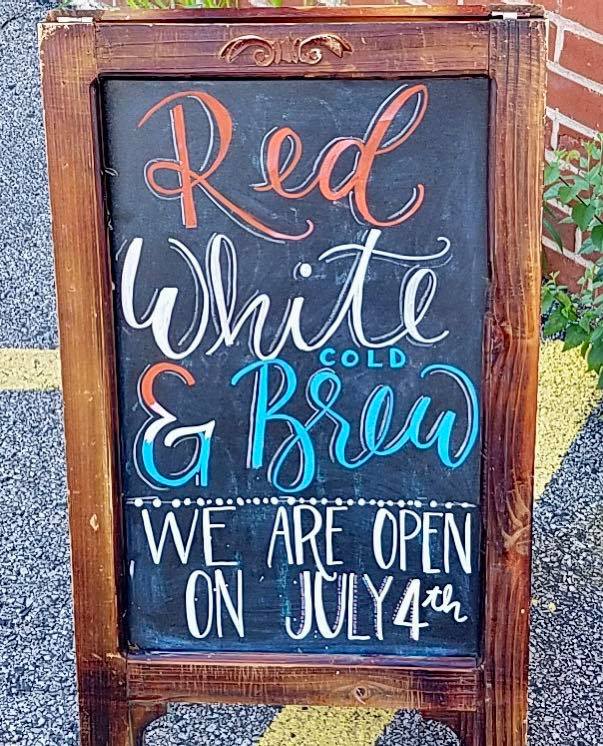 Red
White
COLD
& Brew
WE ARE OPEN
ON JULY 4th